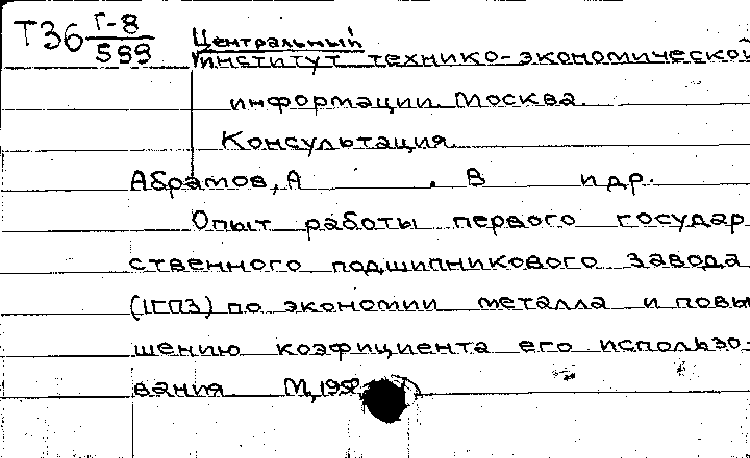 Т36 Г-8
599
Центральный
институт технико-экономической
информации. Москва.
Консультация
Абрамов, А . В и др.
Опыт работы первого государ
ственного подшипникового завода
(1ГПЗ) по экономии металла и повы
шению коэфициента его использо-
вания М,